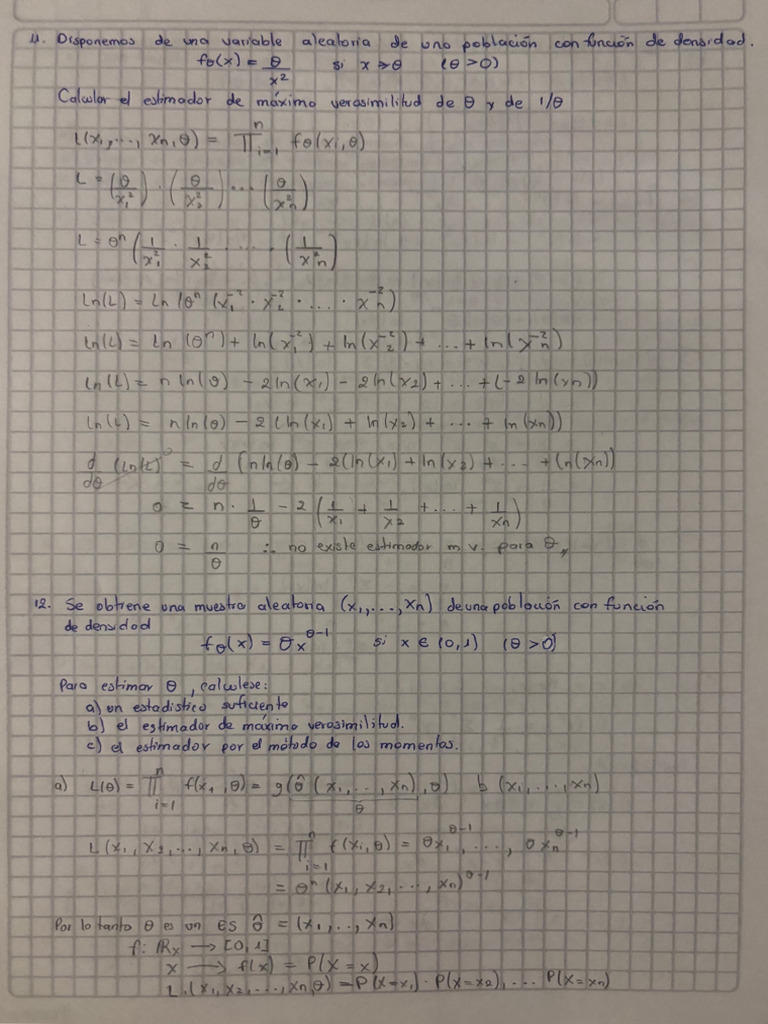 11. Disponemos de una variable aleatoria de una población con función de densidad.
fθ(x) = θ/x² si x ≥ θ (θ > 0)
Calcular el estimador de máximo verosimilitud de θ y de 1/θ
L(x₁, ..., xn, θ) = ∏ⁿᵢ₌₁ fθ(xi, θ)
L = (θ/x₁²) · (θ/x₂²) ... (θ/xn²)
L = θⁿ (1/x₁² · 1/x₂² · ... · (1/x²n)
Ln(L) = Ln (θⁿ (x₁⁻² · x₂⁻² · ... · xn⁻²)
Ln(L) = Ln (θⁿ) + ln(x₁⁻²) + ln(x₂⁻²) + ... + ln(xn⁻²)
Ln(L) = n ln(θ) - 2 ln(x₁) - 2 ln(x₂) + ... + (-2 ln(xn))
Ln(L) = n ln(θ) - 2 (ln(x₁) + ln(x₂) + ... + ln(xn))
d/dθ (Ln(L))⁰ = d/dθ (n ln(θ) - 2(ln(x₁) + ln(x₂) + ... + ln(xn))
0 = n · 1/θ - 2 (1/x₁ + 1/x₂ + ... + 1/xn)
0 = n/θ ∴ no existe estimador m.v. para θ,,
12. Se obtiene una muestra aleatoria (x₁, ..., xn) de una población con función
de densidad
fθ(x) = θx^(θ-1) si x ∈ (0,1) (θ > 0)
Para estimar θ, calculese:
a) un estadistico suficiente
b) el estimador de máximo verosimilitud.
c) el estimador por el método de los momentos.
a) L(θ) = ∏ⁿᵢ₌₁ f(x₁, θ) = g(θ̂ (x₁, ..., xn), θ) b (x₁, ..., xn)
θ̂
L(x₁, x₂, ..., xn, θ) = ∏ⁿᵢ₌₁ f(xi, θ) = θx₁^(θ-1), ..., θxn^(θ-1)
= θⁿ (x₁, x₂, ..., xn)^(θ-1)
Por lo tanto θ es un ES θ̂ = (x₁, ..., xn)
f: ℝx → [0,1]
x → f(x) = P(X = x)
L (x₁, x₂, ..., xn, θ) = P(X = x₁) · P(X = x₂), ... P(X = xn)